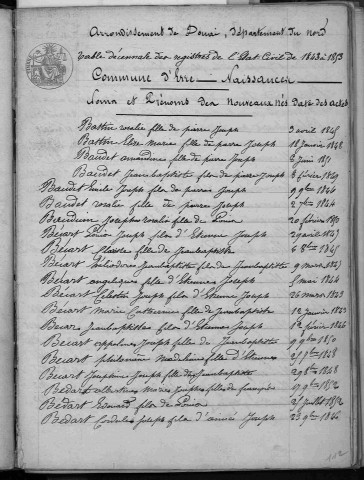 Arrondissement de Douai, département du Nord
Table décennale des registres de l'Etat Civil de 1843 à 1853
Commune d'Erre Naissances
Noms et Prénoms des nouveaux nés Date des actes
Battin rosalie fille de pierre Joseph 3 avril 1845
Battin Elise Marie fille de pierre Joseph 18 Janvier 1848
Baudet amandine fille de pierre Joseph 2 Juin 1851
Baudet Jeanbaptiste fils de pierre Joseph 8 février 1849
Baudet Emile Joseph fils de pierre Joseph 9 9bre 1846
Baudet rosalie fille de pierre Joseph 2 7bre 1844
Joseph rosalie fille de 20 février 1853
Bécart Louis Joseph fils d'Etienne Joseph 2 avril 1847
Bécart fille de Jeanbaptiste 6 8bre 1845
Bécart Jeanbaptiste fils de Jeanbaptiste 9 mars 1847
Bécart angelique fille d'Etienne Joseph 5 mai 1844
Bécart Celestin Joseph fils d'Etienne Joseph 26 mars 1843
Bécart Marie Catherine fille de Jeanbaptiste 12 Janvier 1843
Jeanbaptiste fils d'Etienne Joseph 12 février 1846
Bécart appoline Joseph fille de Jeanbaptiste 9 9bre 1850
Bécart philomène Madeleine fille d'Etienne
Bécart Joseph fille de Jeanbaptiste 29 8bre 1848
Bédart albertine Marie Joseph fille de françois 19 9bre 1852
Bédart Edouard fils de Louis 25 Juillet 1852
Bédart Cordule Joseph fille d'aimée Joseph 23 9bre 1846
112